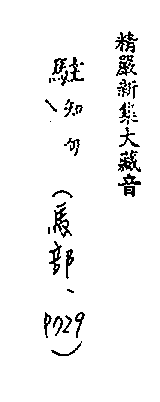 精嚴新集大藏音
駐知句(馬部、
P729)